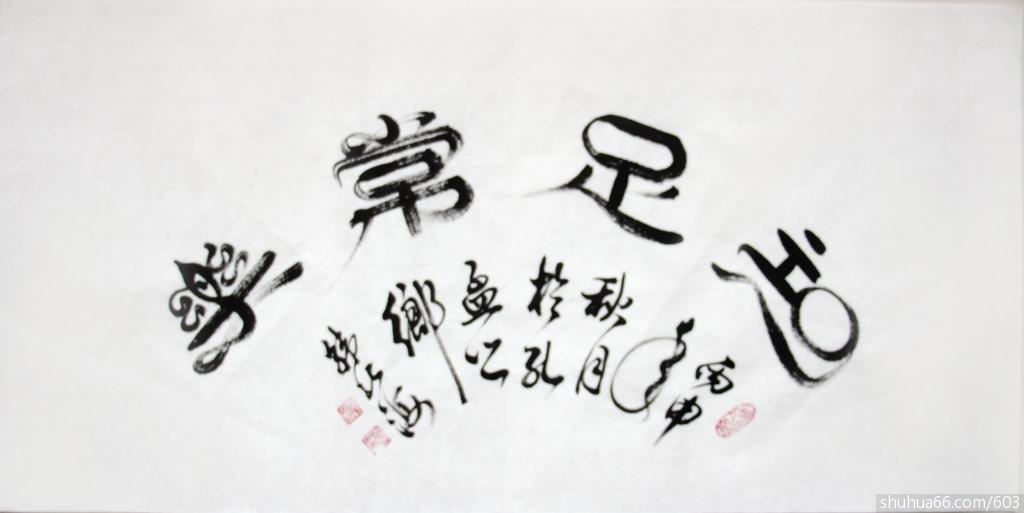 知足常樂
丙申
年
秋月
於孔
孟之
鄉
shuhua66.com/603